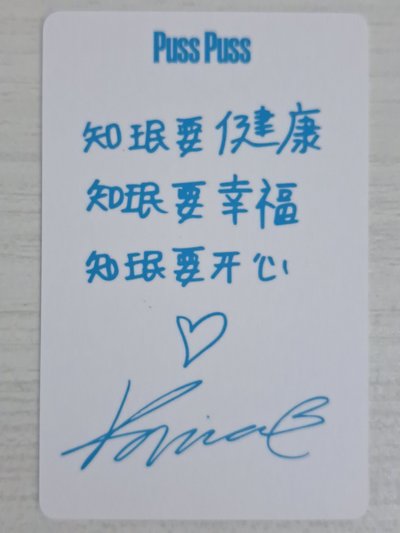 Puss Puss
知珉要健康
知珉要幸福
知珉要开心